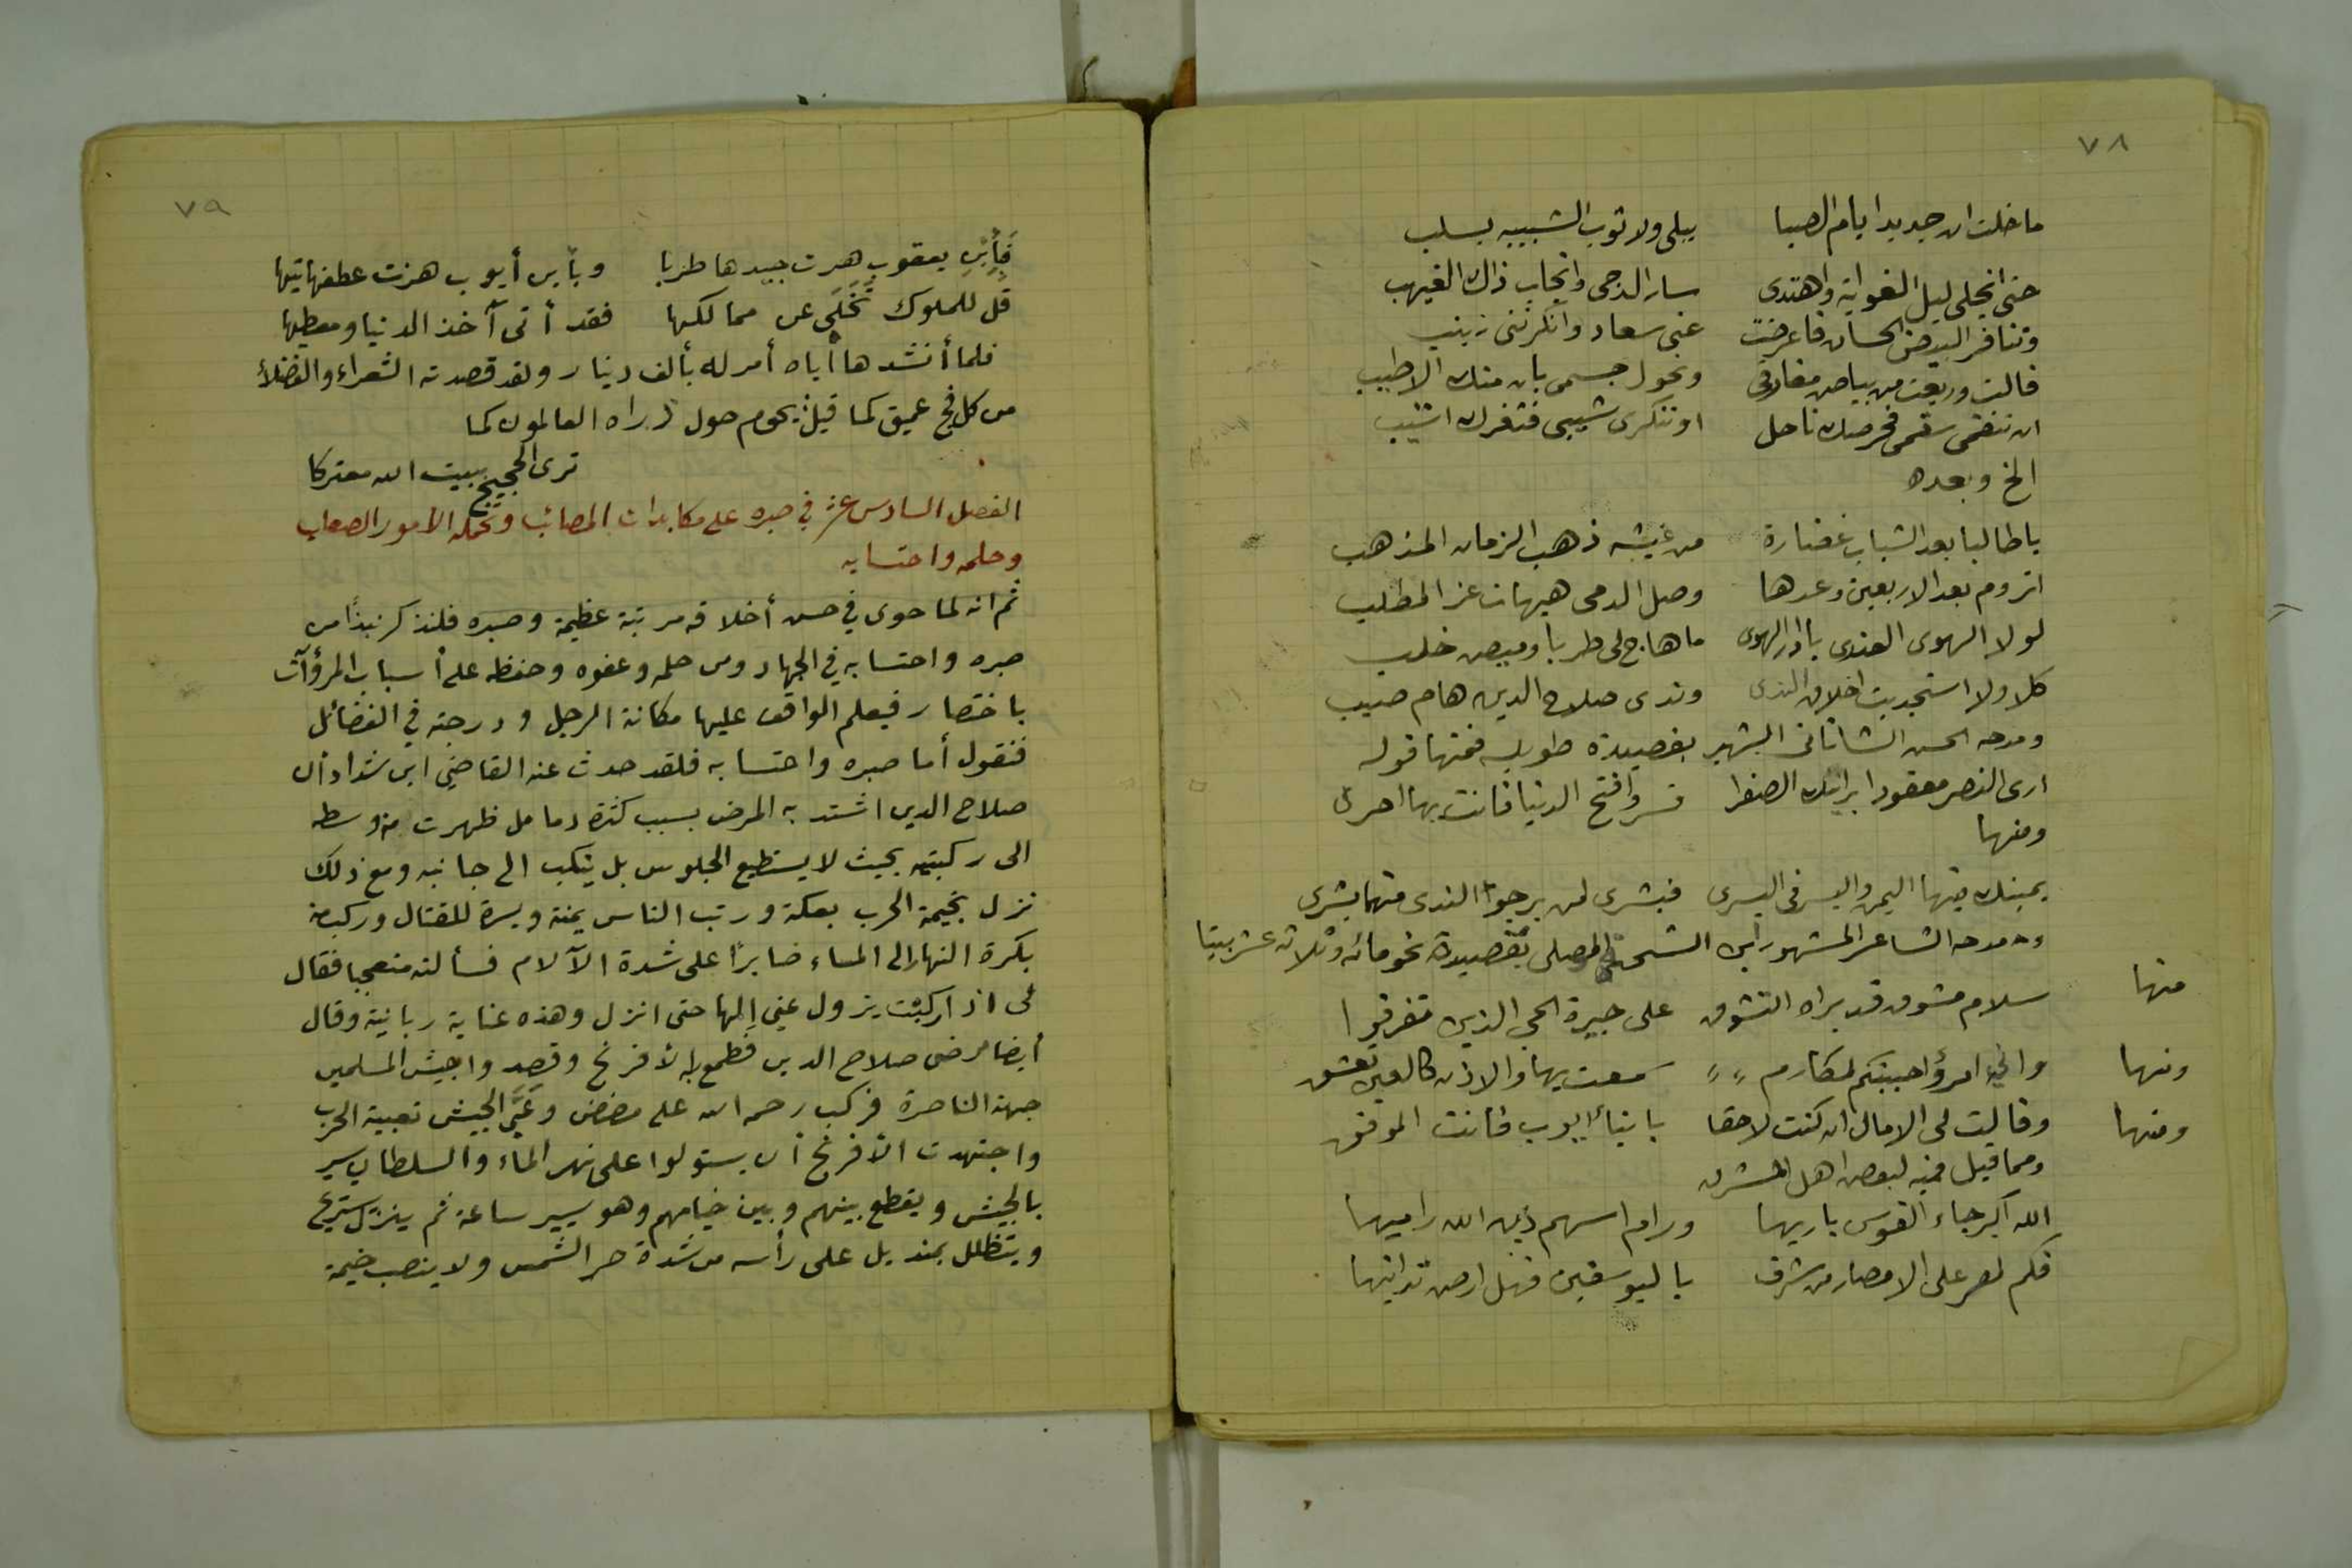 ٧٨
ما خلت ان جديد ايام الصبا يبلى ولا ثوب الشبيبه يسلب
حتى انجلى ليل الغواية واهتدى سار الدجى وانجاب ذاك الغيهب
وتنافر البيض الحسان فاعرضت عني سعاد وانكرتني زينب
قالت وريعت من بياض مفارقي ونحول جسمى بان منك الاطيب
ان تنقمى سقمى فخصرك ناحل او تنكرى شيبى فثغرك اشنب
الخ وبعده
يا طالبا بعد الشباب غضارة من عيشه ذهب الزمان المذهب
اتروم بعد الاربعين وعدها وصل الدمى هيهات عز المطلب
لولا الهوى العذرى يا دار الهوى ما هاج لى طربا وميض خلب
كلا ولا استجديت اخلاف الندى وندى صلاح الدين هام صيب
ومدحه الحسن الشاتانى الشهير بقصيدة طويله فمنها قوله
ارى النصر معقودا برايتك الصفرا فسر وافتح الدنيا فانت بها احرى
ومنها
يمينك فيها اليمن واليسر فى اليسرى فبشرى لمن يرجوا الندى منهما بشرى
ومدحه الشاعر المشهور ابن الشحنة الموصلى بقصيدة نحو مائه وثلاثه عشر بيتا
منها سلام مشوق قد براه التشوق على جيرة الحي الذين تفرقوا
ومنها واني امرؤ احببتكم لمكارم سمعت بها والاذن كالعين تعشق
ومنها وقالت لى الامال ان كنت لاحقا بابناء ايوب فانت الموفق
ومما قيل فيه لبعض اهل المشرق
الله اكبر جاء القوس باريها ورام اسهم دين الله راميها
فكم لمصر على الامصار من شرف باليوسفين فهل ارض تدانيها
٧٩
فبأبن يعقوب هزت جيدها طربا وبأبن أيوب هزت عطفها تيها
قل للملوك تخلى عن ممالكها فقد أتى آخذ الدنيا ومعطيها
فلما أنشدها أياه أمر له بألف دينار ولقد قصدته الشعراء والفضلاء
من كل فج عميق كما قيل: يحوم حول ذراه العالمون كما
ترى الحجيج ببيت الله معتركا
الفصل السادس عشر في صبره على مكابدات المصائب وتحمله الأمور الصعاب
وحلمه واحتسابه
ثم انه لما حوى في حسن أخلاقه مرتبة عظيمة وصبره فلنذكر نبذًا من
صبره واحتسابه في الجهاد ومن حلمه وعفوه وحفظه على أسباب المرؤآت
باختصار فيعلم الواقف عليها مكانة الرجل ودرجته في الفضائل
فنقول أما صبره واحتسابه فلقد حدث عنه القاضي ابن شداد أن
صلاح الدين اشتد به المرض بسبب كثرة دمامل ظهرت من وسطه
الى ركبتيه بحيث لا يستطيع الجلوس بل يتكب الى جانبه ومع ذلك
نزل بخيمة الحرب بعكة ورتب الناس يمنة ويسرة للقتال وركب من
بكرة النهار الى المساء صابرًا على شدة الآلام فسألته متعجبا فقال
لى اذا ركبت يزول عني المها حتى انزل وهذه عناية ربانية وقال
أيضا مرض صلاح الدين فطمع به الأفرنج وقصدوا جيش المسلمين
جهة الناصرة فركب رحمه الله على مضض وعَبَّى الجيش تعبية الحرب
واجتهدت الأفرنج أن يستولوا على نهر الماء والسلطان يسير
بالجيش ويقطع بينهم وبين خيامهم وهو يسير ساعة ثم ينزل يستريح
ويتظلل بمنديل على رأسه من شدة حر الشمس ولا ينصب خيمة